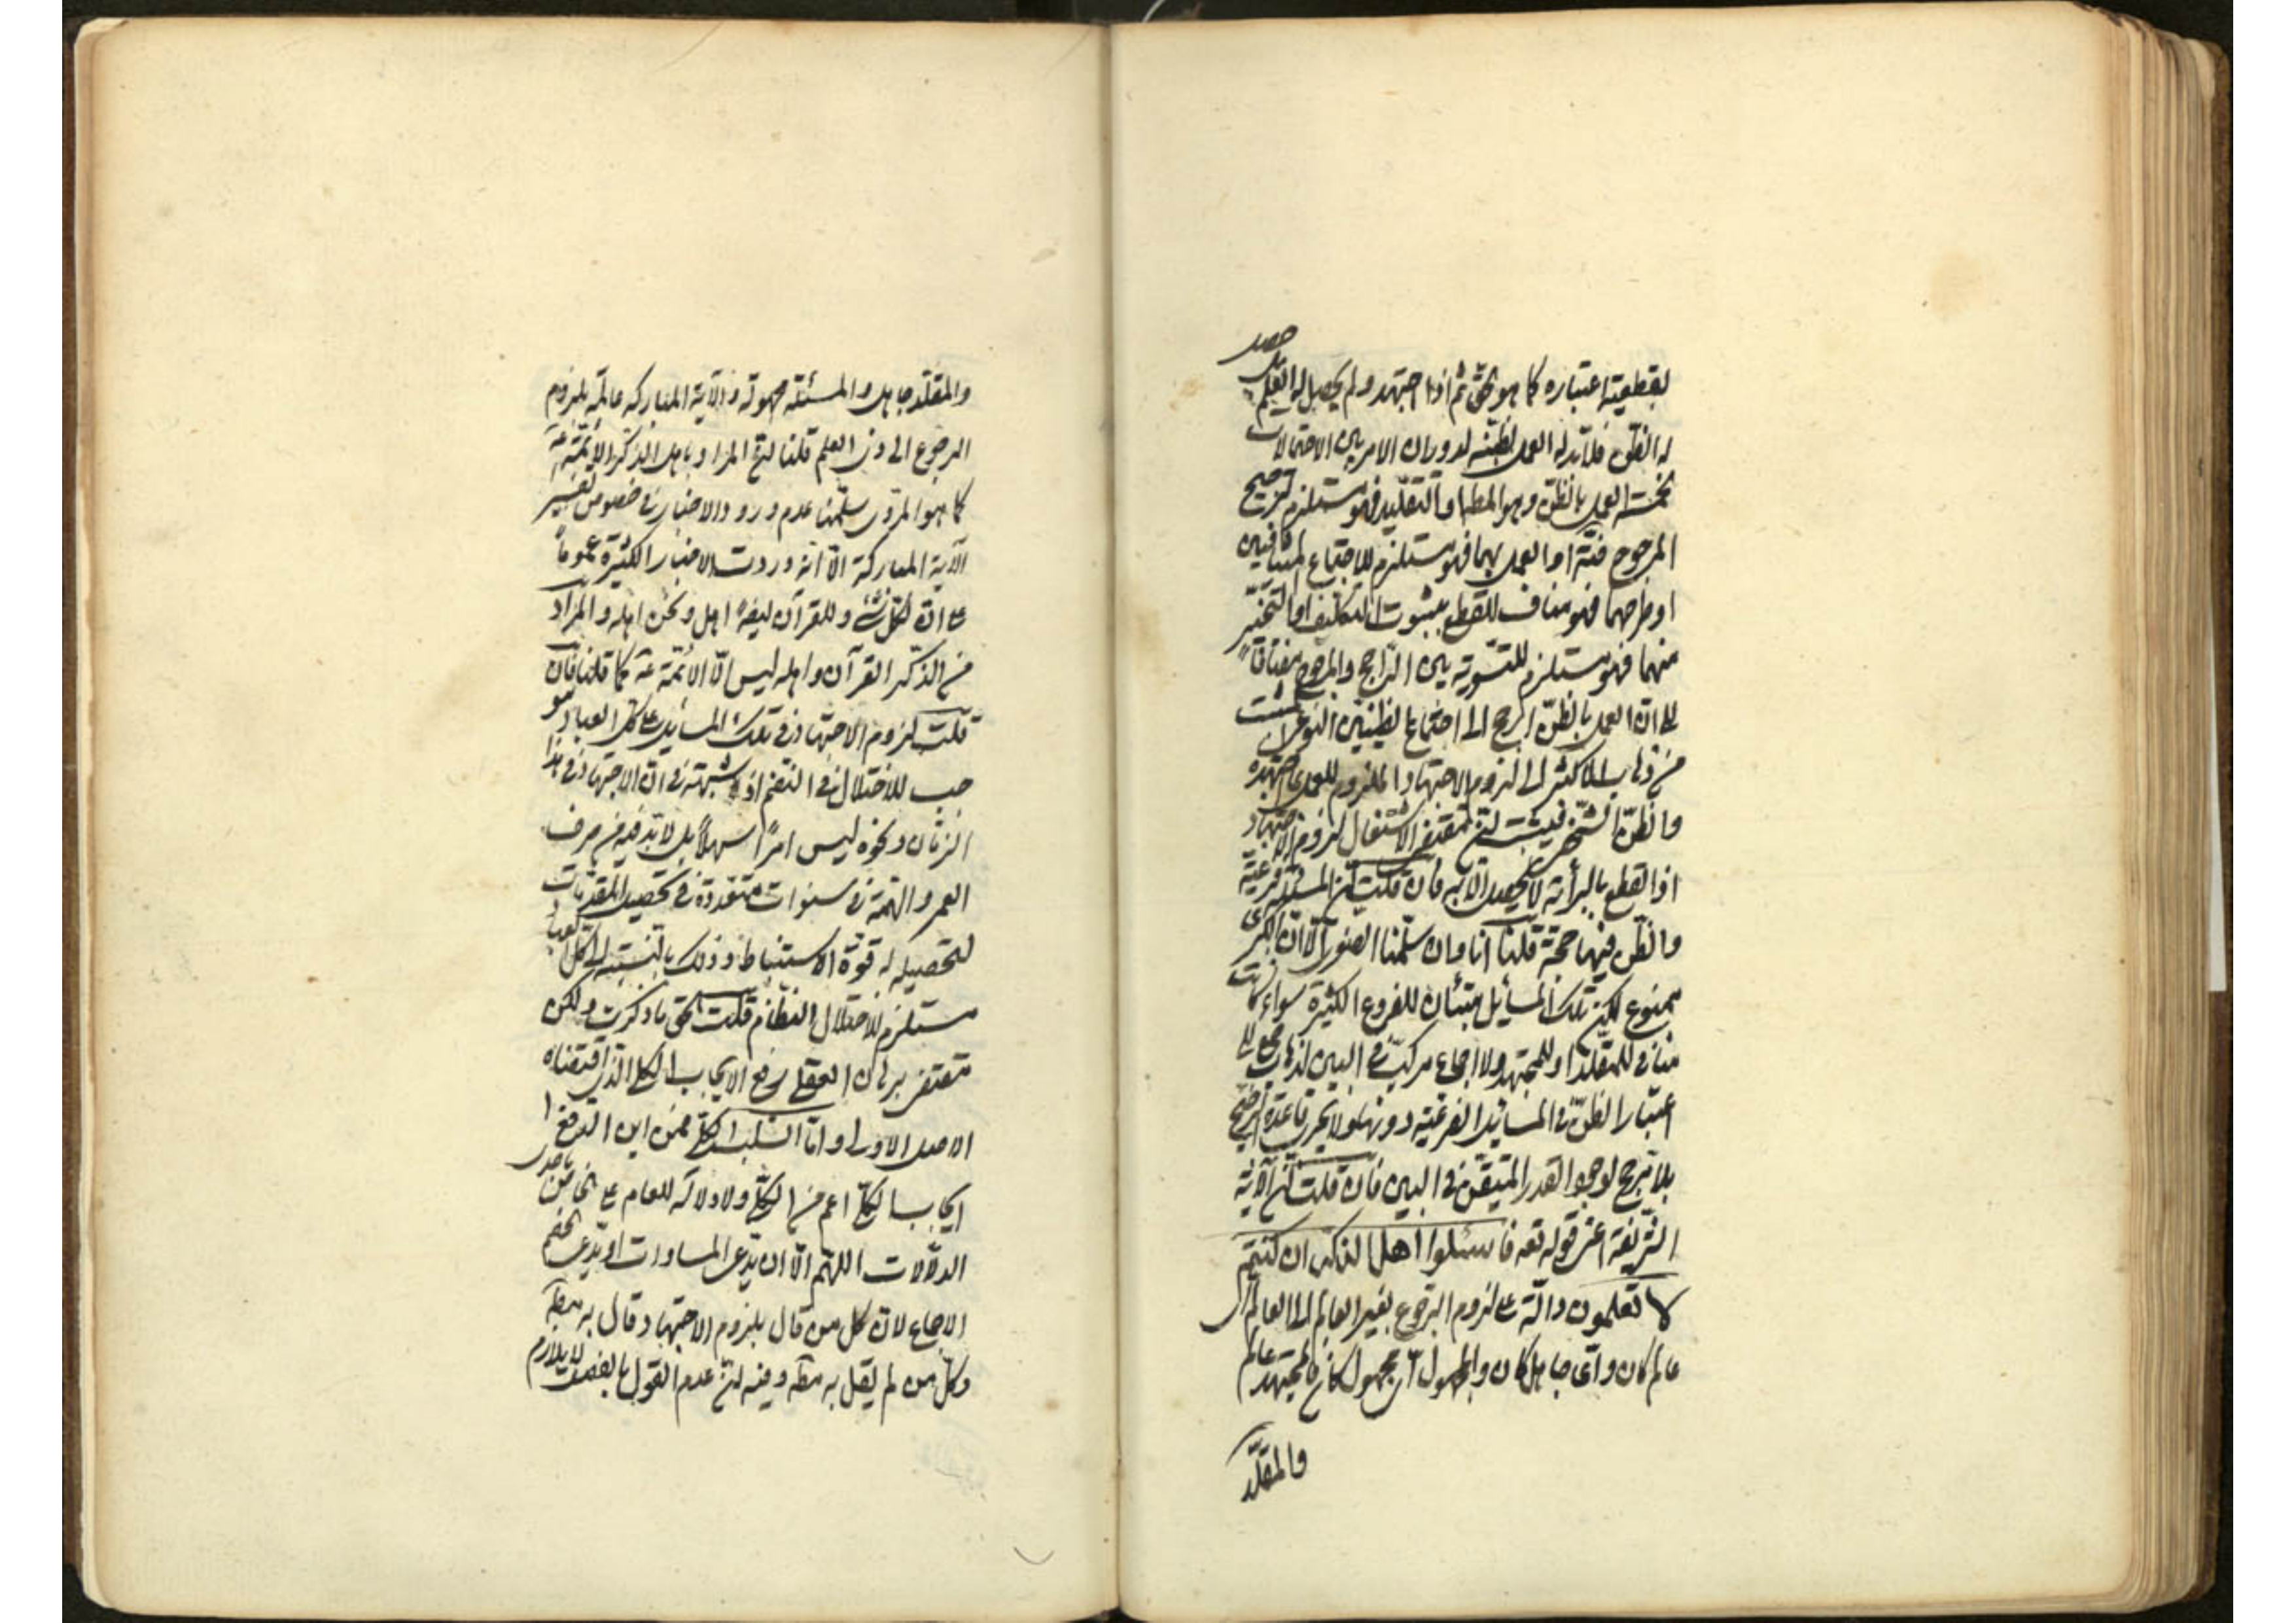 لقطعية اعتباره كما هو الحق ثم اذا اجتهد ولم يحصل له العلم بل حصل
له الظن فلا بد له العمل بظنه لدوران الامر بين الاحتمالات
الخمسة العمل بالظن وهو المط او التقليد فهو مستلزم لترجيح
المرجوح فتة او العمل بهما فهو مستلزم للاجتماع المتنافيين
او طرحهما فهو مناف للقطع بثبوت التكليف او التخيير
منهما فهو مستلزم للتسوية بين الراجح والمرجوح
ان العمل بالظن ارجح الى اجتماع الظنين النوعى
من ذهاب الاكثر الى لزوم الاجتهاد الملزوم للعمل
والظن الشخصى لمقتضى الاشتغال لزوم الاجتهاد
اذ القطع بالبرأة لا يحصل الا به فان قلت ان المسئلة فرعية
والظن فيها حجة قلنا انا وان سلمنا الصغرى الا ان الكبرى
ممنوع لكن تلك المسائل منشأن للفروع الكثيرة سواء كانت
للمقلد او للمجتهد ولا اجماع مركب فى البين لذهاب جمع الى
اعتبار الظن فى المسائل الفرعية دونها ولا يجرى قاعدة الترجيح
بلا مرجح لوجود القدر المتيقن فى البين فان قلت ان الآية
الشريفة اعنى قوله تعه فاسئلوا اهل الذكر ان كنتم
لا تعلمون دالة على لزوم الرجوع لغير العالم الى العالم اى
عالم كان واى جاهل كان والمجهول اى مجهول كان فالمجتهد عالم
والمقلد
والمقلد جاهل والمسئلة مجهولة والآية المباركه عالمة بلزوم
الرجوع الى ذى العلم قلنا ان المراد باهل الذكر الائمة ع
كما هو المروى سلمنا عدم ورود الاخبار فى خصوص تفسير
الآية المباركة الا انه وردت الاخبار الكثيرة عموماً
على ان لكل شئ وللقرآن ايضا اهل ونحن اهله والمراد
من الذكر القرآن واهله ليس الا الائمة ع كما قلنا فان
قلت لزوم الاجتهاد فى تلك المسائل على كل العباد مو
جب للاختلال فى النظم اذ لا شبهة فى ان الاجتهاد فى هذا
الزمان ونحوه ليس امراً سهلاً بل لا بد فيه من صرف
العمر والهمة فى سنوات متعددة فى تحصيل المقدمات
لتحصيله له قوة الاستنباط وذلك بالنسبة الى كل العباد
مستلزم للاختلال النظام قلت الحق ما ذكرت ولكن
مقتضى برهان العقلى رفع الايجاب الكلى الذى اقتضاه
الاصل الاولى واما السلب الكلى فمن اين اذ رفع
ايجاب الكلى اعم من الكلى ولا دلالة للعام على الخاص باحدى
الدلالات اللهم الا ان يدعى المساوات او يدعى الخصم
الاجماع لان كل من قال بلزوم الاجتهاد قال به مطه
وكل من لم يقل به مطه وفيه ان عدم القول بالفصل لا يلازم